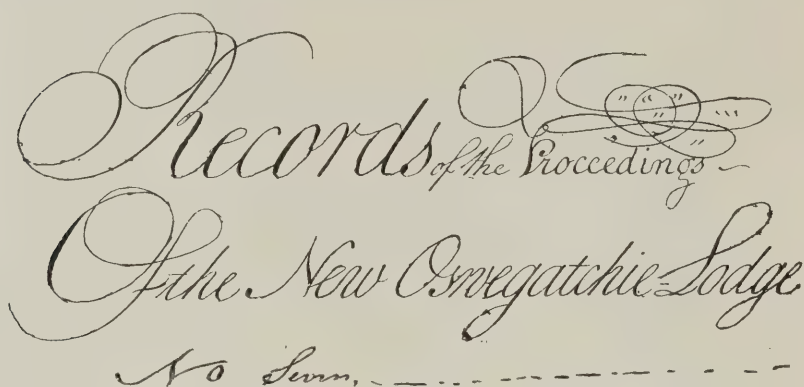 Records of the Proceedings
Of the New Oswegatchie=Lodge
No Seven,